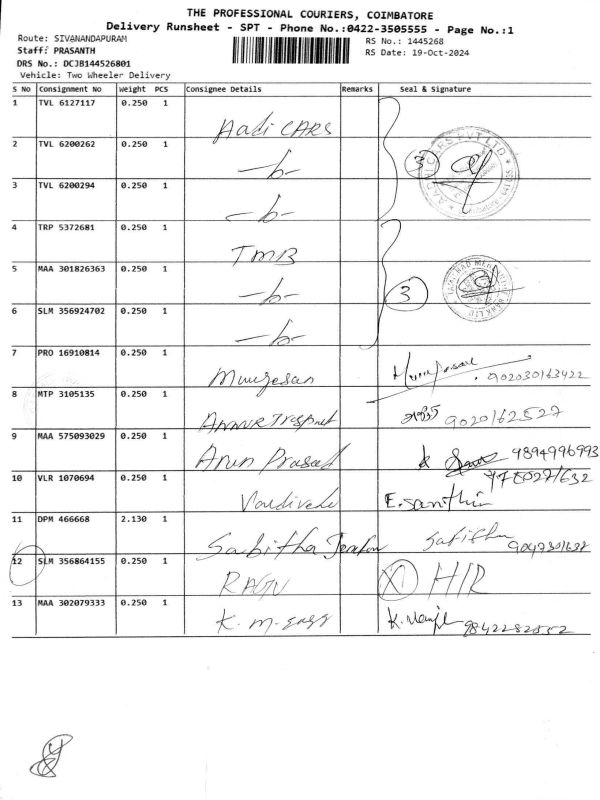 THE PROFESSIONAL COURIERS, COIMBATORE
Delivery Runsheet - SPT - Phone No.:0422-3505555 - Page No.:1
Route: SIVANANDAPURAM
RS No.: 1445268
Staff: PRASANTH
RS Date: 19-Oct-2024
DRS No.: DCJB144526801
Vehicle: Two Wheeler Delivery
S No Consignment No Weight PCS Consignee Details Remarks Seal & Signature
1 TVL 6127117 0.250 1 Aadi CARS
2 TVL 6200262 0.250 1 3
3 TVL 6200294 0.250 1
4 TRP 5372681 0.250 1 TMB
5 MAA 301826363 0.250 1 3
6 SLM 356924702 0.250 1
7 PRO 16910814 0.250 1 Murugesan
8 MTP 3105135 0.250 1 9020162527
9 MAA 575093029 0.250 1 Arun Prasad 9894996993
10 VLR 1070694 0.250 1 Vadivelu E.Santhiya
11 DPM 466668 2.130 1 Sabitha
12 SLM 356864155 0.250 1 RAGU H/R
13 MAA 302079333 0.250 1 K. M. 9842282552